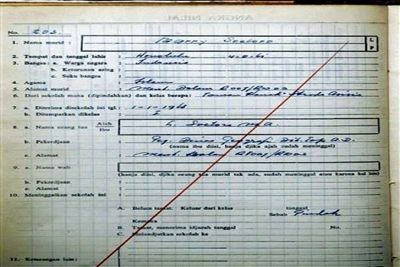 ANGKA NILAI
No. 203.
1. Nama murid : Barry Soetoro L P
2. Tempat dan tanggal lahir : Honolulu 4-8-61
3. Bangsa : a. Warga negara : Indonesia
b. Keturunan asing :
c. Suku bangsa :
4. Agama : Islam
5. Alamat murid : Ment. Dalam R001/R003
6. Dari sekolah mana (dipindahkan) dan kelas berapa :
7. a. Diterima disekolah ini tgl : 1-1-1968
b. Ditempatkan dikelas : I
8. a. Nama orang tua Ajah Ibu : L. Soetoro M A
b. Pekerdjaan : Dit. Top. A.D.
(nama ibu diisi, hanja djika ajah sudah meninggal)
c. Alamat : Ment. Dalam R001/R003
9. a. Nama wali :
(hanja diisi, djika orang tua murid tak ada, sudah meninggal atau karena hal lain)
b. Pekerdjaan :
c. Alamat :
10. Meninggalkan sekolah ini
A. Belum tamat. Keluar dari kelas tanggal
Sebab Pindah
Kemana
B. Tamat, menerima idjazah tanggal No.
C. Melandjutkan sekolah ke
11. Keterangan lain :